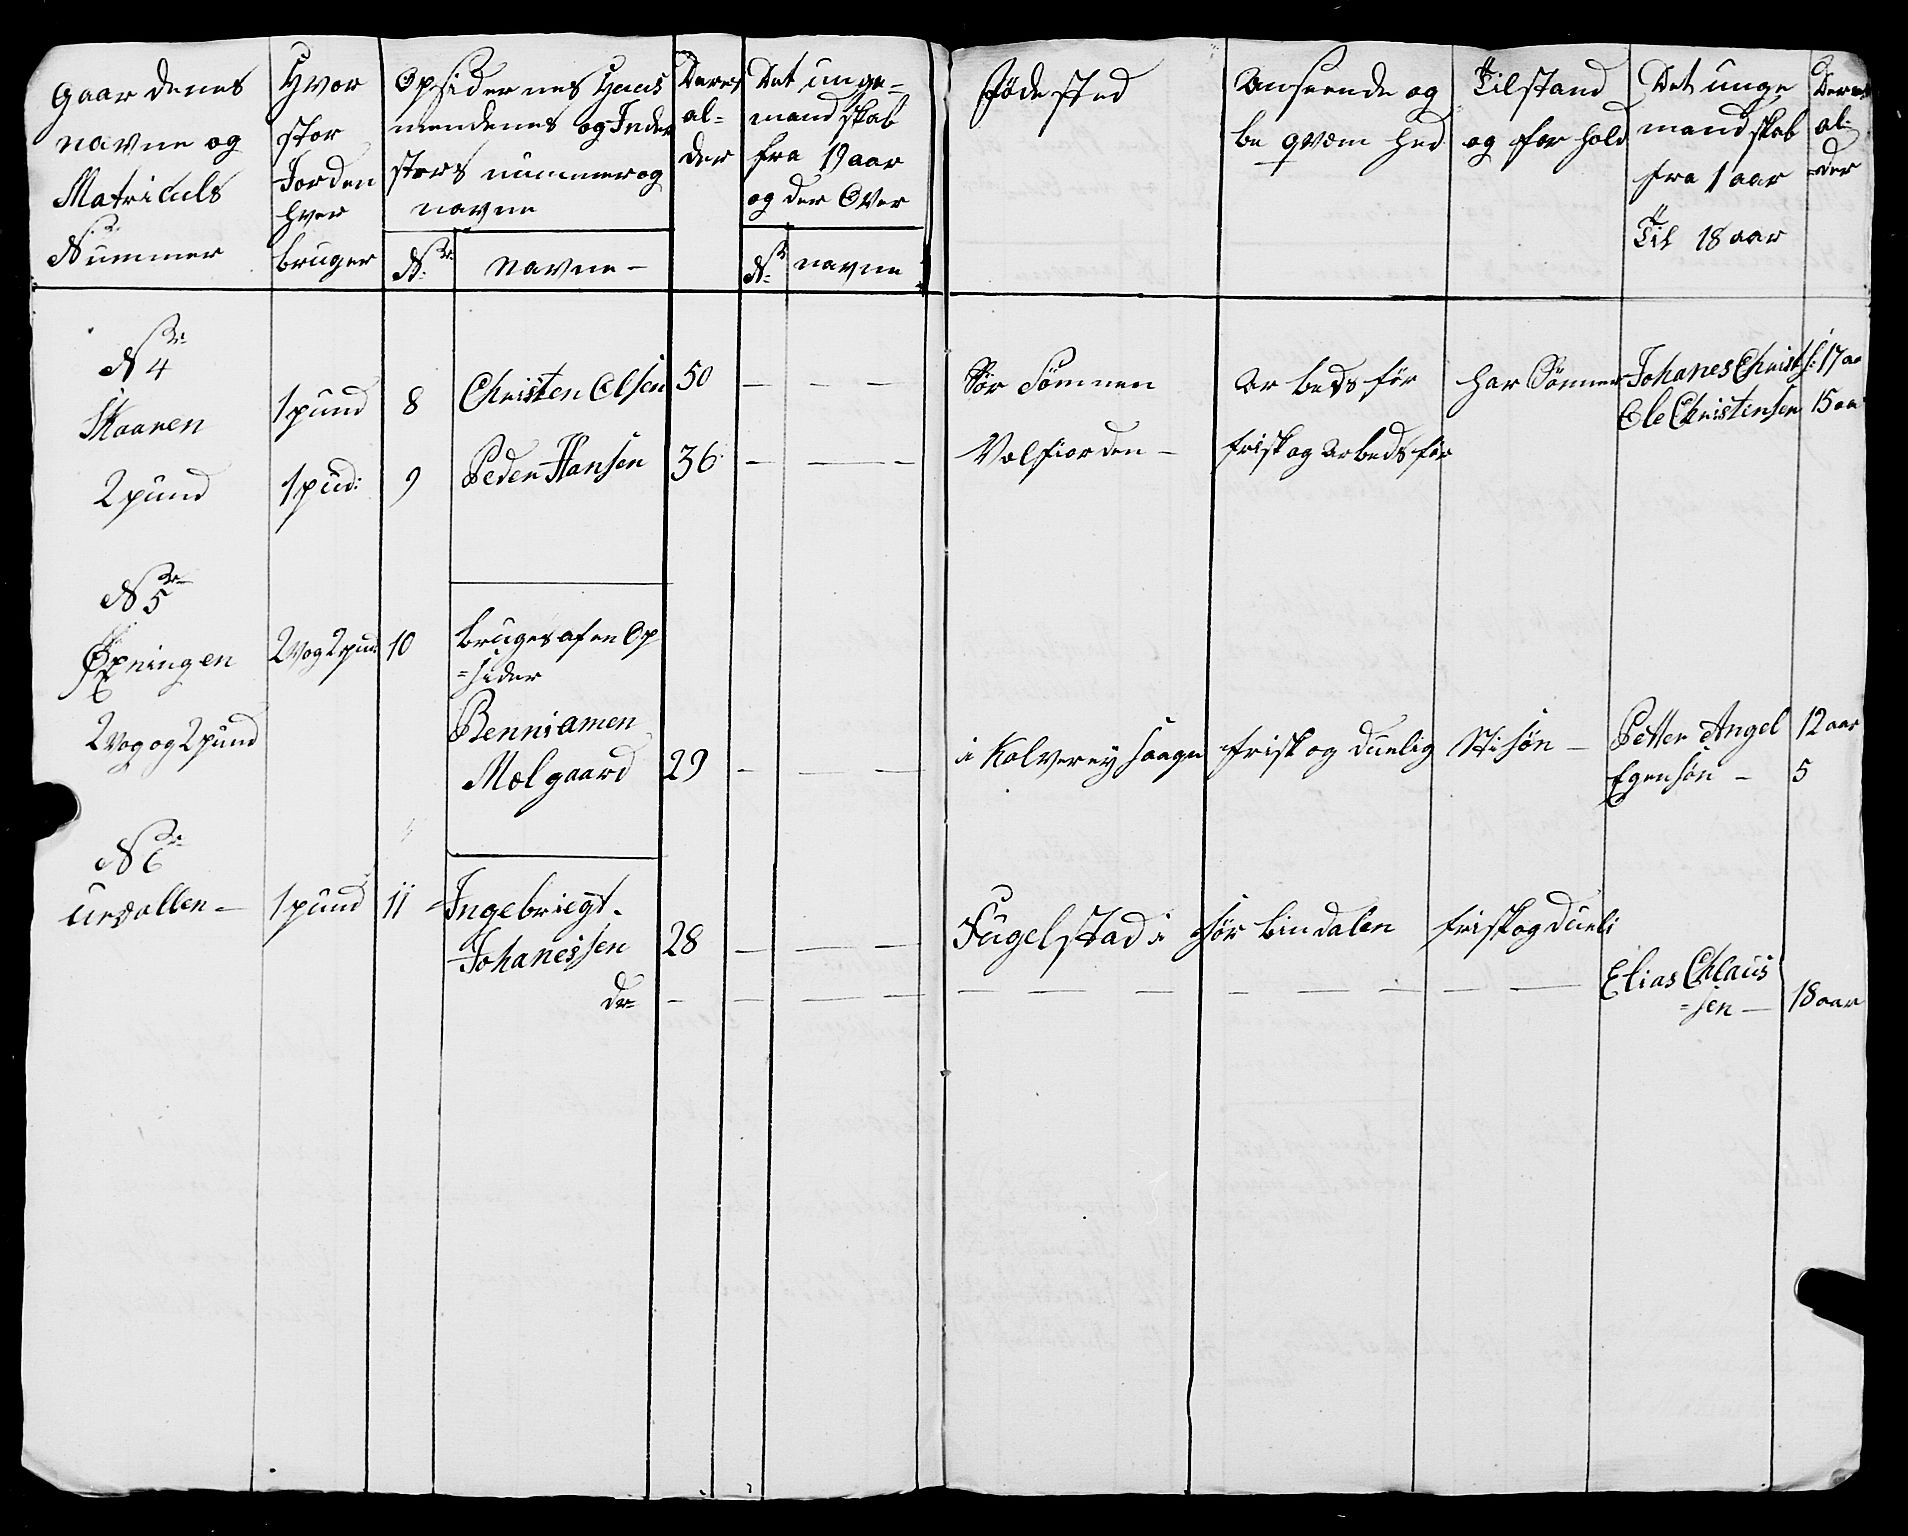 Gaardenes
navne og
Matriculs
Nummer
Hvor
stor
Jorden
hver
bruger
Opsidernes Huus
mendenes og Inder
sters nummer og
navne
Nr:
Navne –
Deres
al-
der
Det unge-
mandskab
fra 19 aar
og der Over
Nr:
navne
Föde sted
Anseende og
be qvem hed
Tilstand
og for hold
Det unge
mandskab
fra 1 aar
Til 18 aar
Deres
al-
der
Nr 4
Skaaren
1 pund
8
Christen Olsen
50
– – –
Sör Sömnen
Arbeds för
har Sönner
Johanes Christ s: 17 aa
Ole Christensen 15 aa
2 pund
1 pud:
9
Peder Hansen
36
– – –
Velfiorden –
frisk og Arbeds för
Nr 5
Øxningen
2 Vog 2 pund
10
bruges af en Op
=sider
2 Vog og 2 pund
Benniamen
Molgaard
29
– – –
i Kolverey Saagn
frisk og duelig
Stisön –
Petter Angel 12 aar
Egen sön – 5
Nr 6
Urdollen –
1 pund
11
Ingebrigt
Johanessen
28
– – –
Fugelstad i Sör bindalen
frisk og dueli
do
– – – – – – – – – – –
Elias Chlaus
=sen –
18 aar